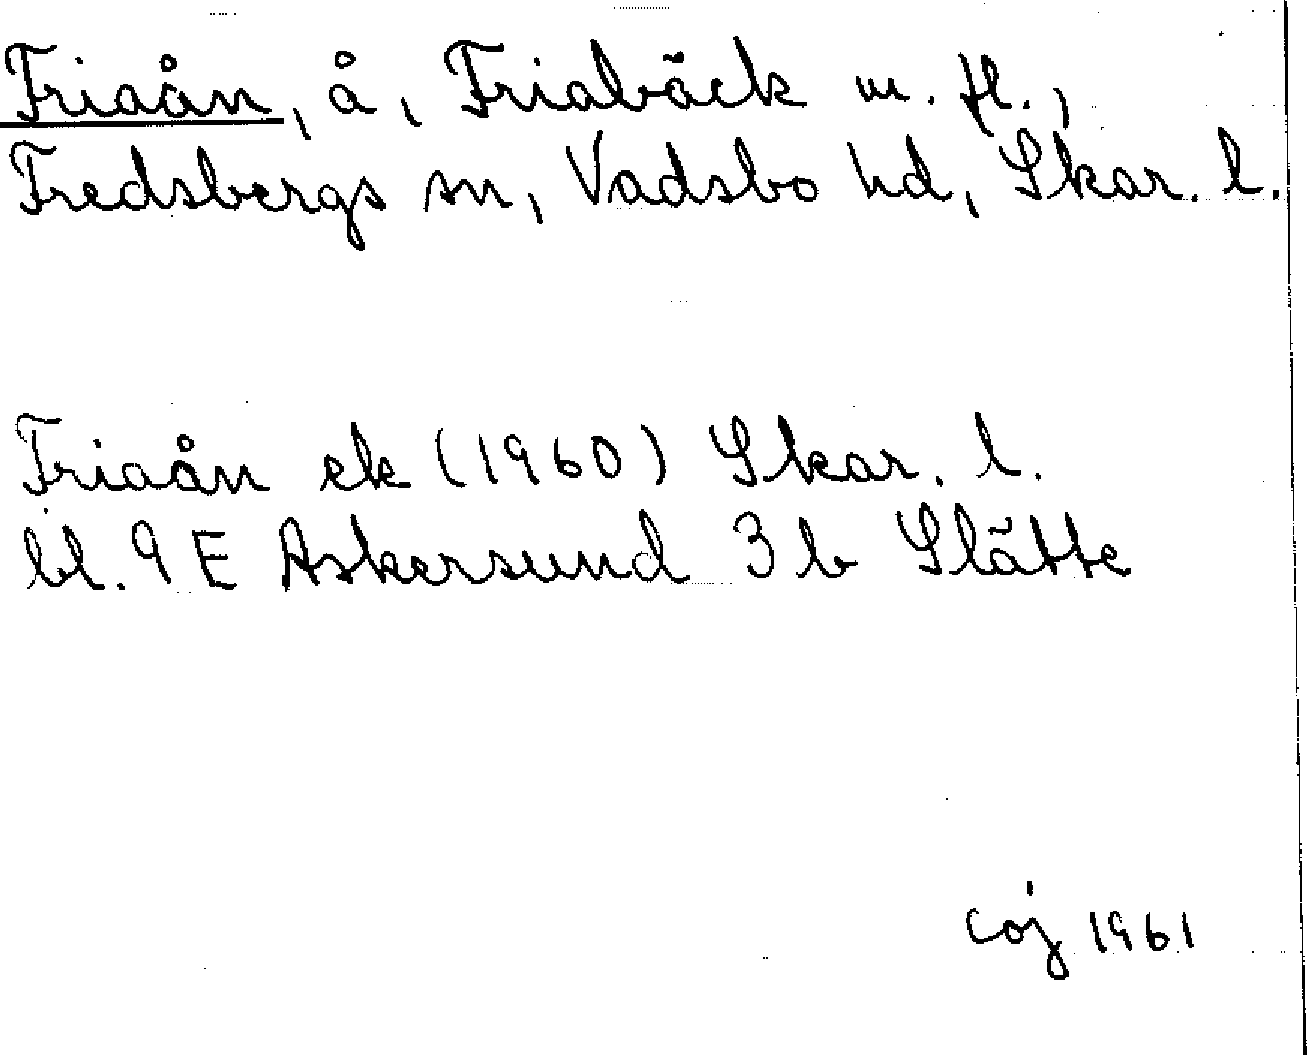 Friaån, å, Friabäck m. fl.,
Fredsbergs sn, Vadsbo hd, Skar. l.
Friaån ek (1960) Skar. l.
bl. 9 E Askersund 3 b Slätte
coj 1961